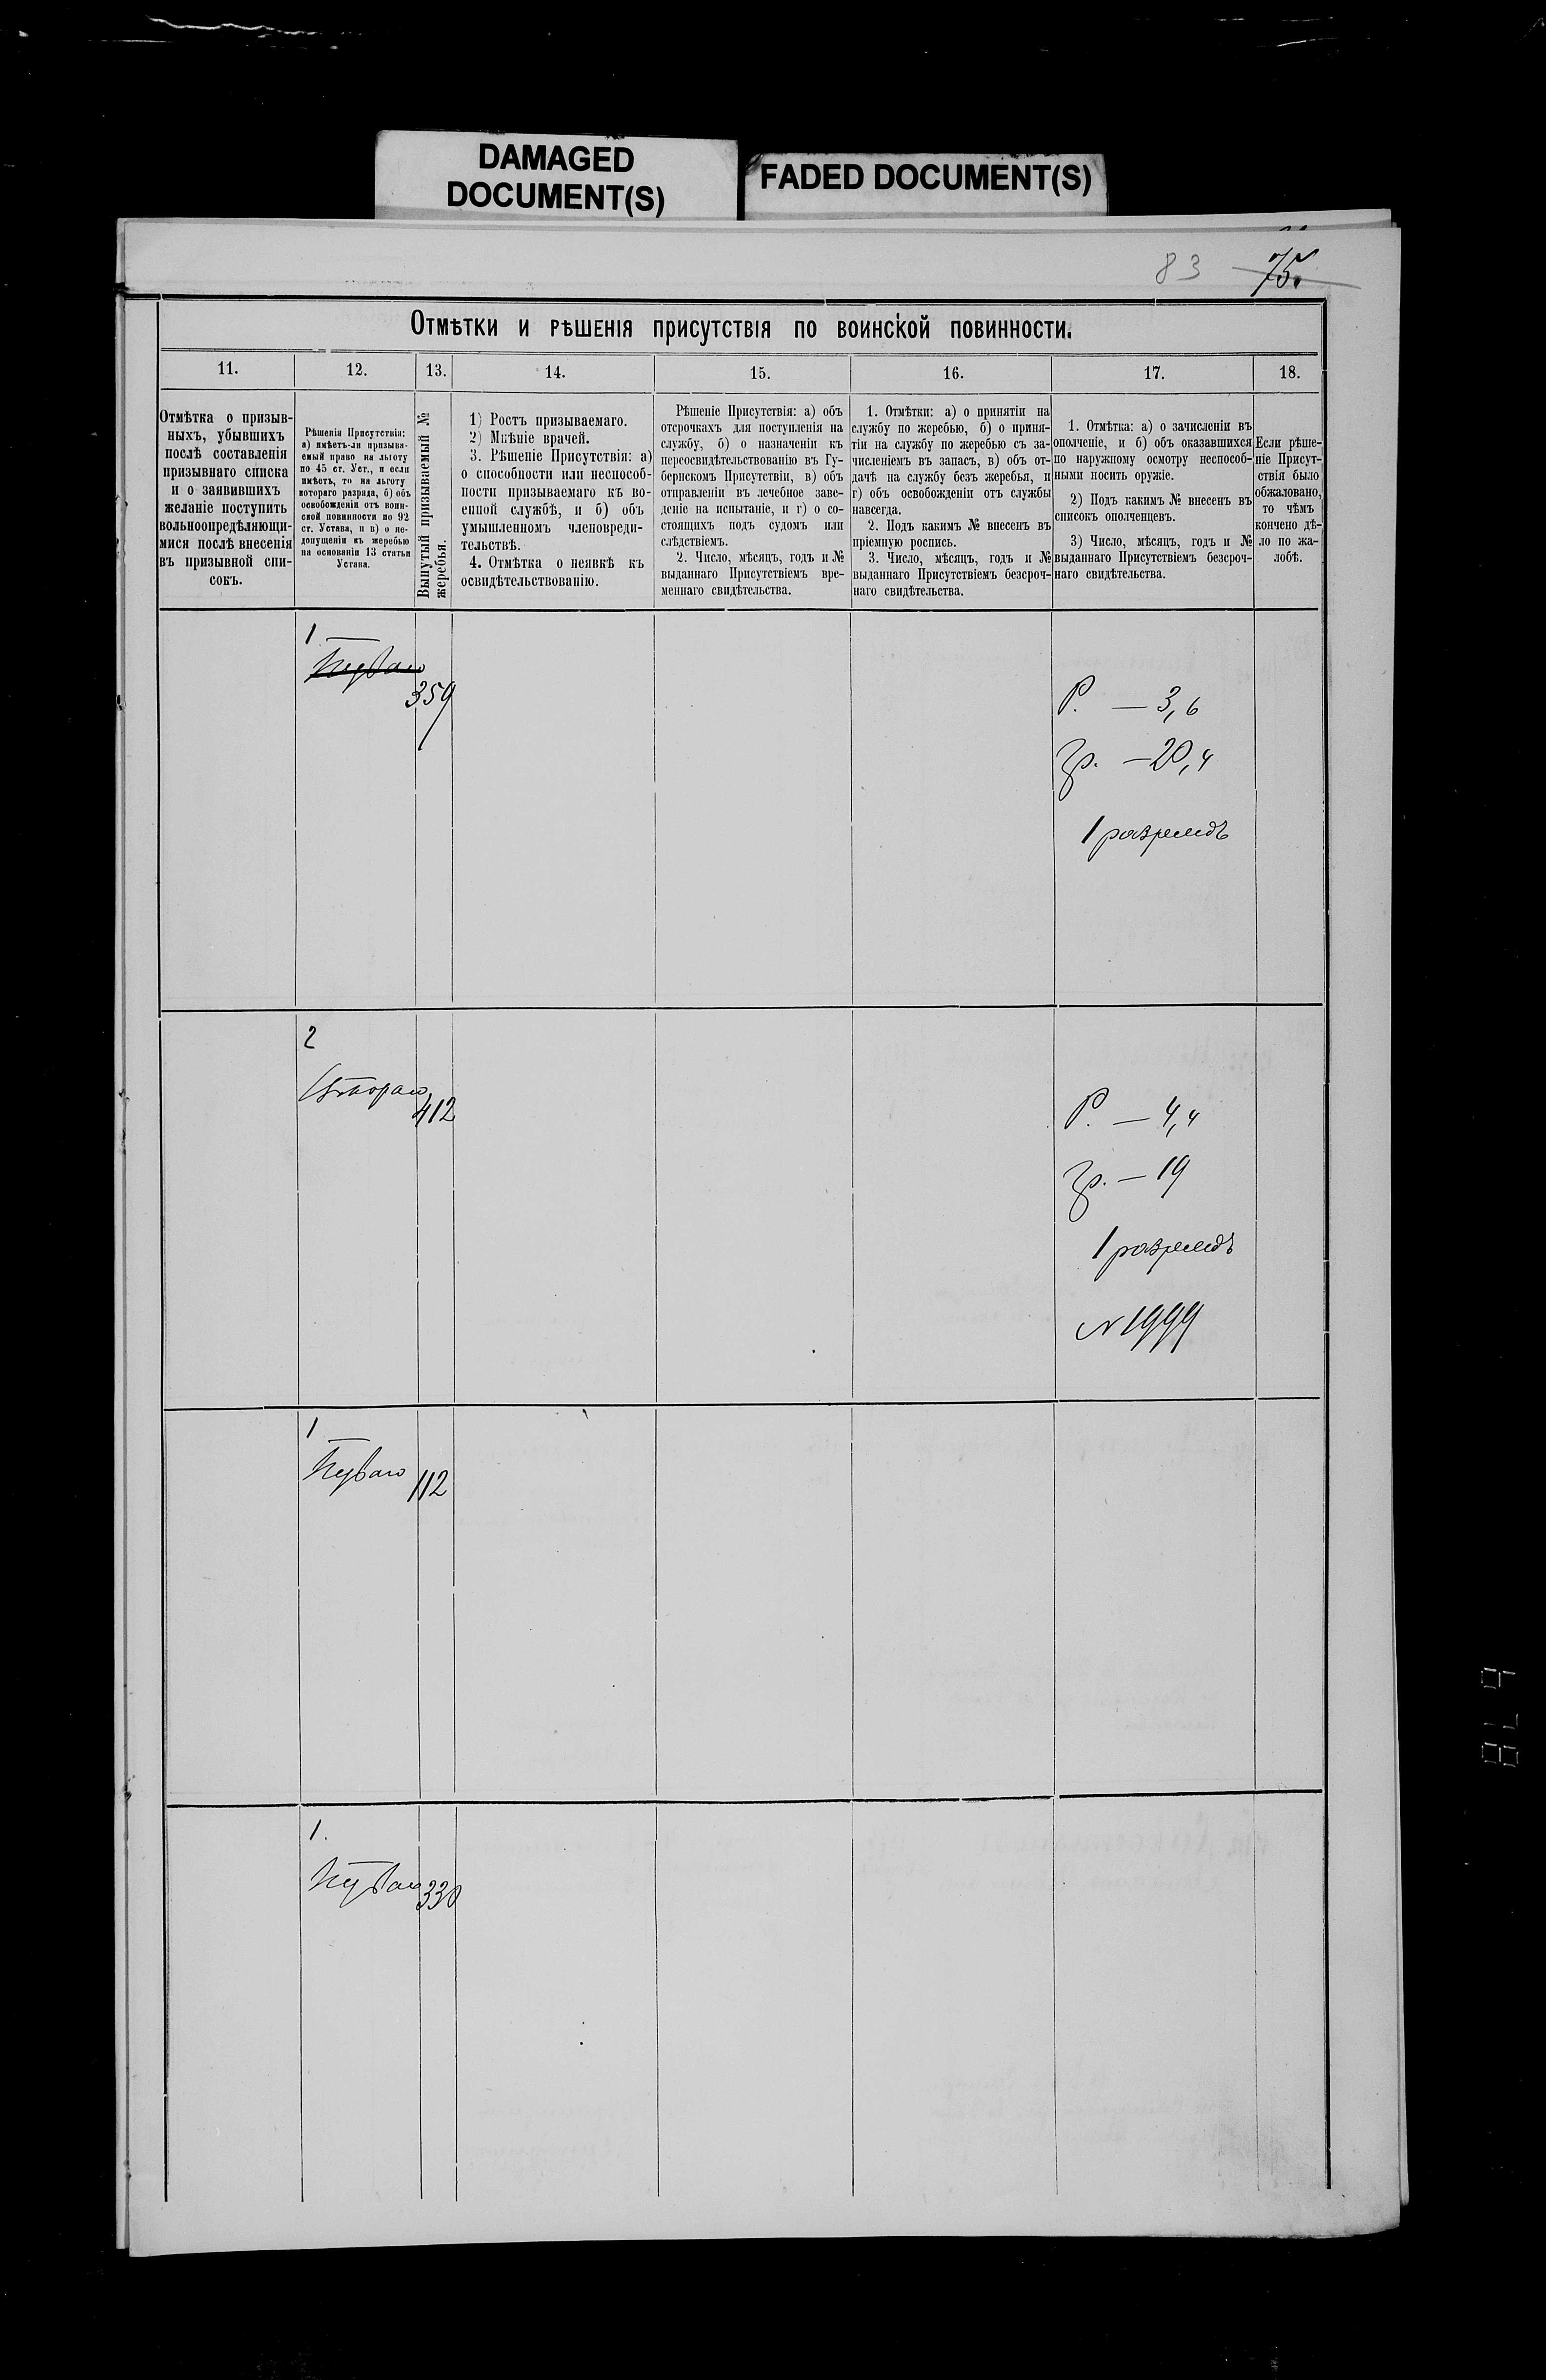 DAMAGED
DOCUMENT(S)
FADED DOCUMENT(S)
83
75.
Отмѣтки и рѣшенія присутствія по воинской повинности.
11.
12.
13.
14.
15.
16.
17.
18.
Отмѣтка о призыв-
ныхъ, убывшихъ
послѣ составленія
призывнаго списка
и о заявившихъ
желаніе поступить
вольноопредѣляющи-
мися послѣ внесенія
въ призывной спи-
сокъ.
Рѣшенія Присутствія:
а) имѣетъ-ли призыва-
емый право на льготу
по 45 ст. Уст., и если
имѣетъ, то на льготу
котораго разряда, б) объ
освобожденіи отъ воин-
ской повинности по 92
ст. Устава, и в) о не-
допущеніи къ жеребью
на основаніи 13 статьи
Устава.
Вынутый призываемый №
жеребья.
1) Ростъ призываемаго.
2) Мнѣніе врачей.
3. Рѣшеніе Присутствія: а)
о способности или неспособ-
ности призываемаго къ во-
енной службѣ, и б) объ
умышленномъ членовреди-
тельствѣ.
4. Отмѣтка о неявкѣ къ
освидѣтельствованію.
Рѣшеніе Присутствія: а) объ
отсрочкахъ для поступленія на
службу, б) о назначеніи къ
переосвидѣтельствованію въ Гу-
бернскомъ Присутствіи, в) объ
отправленіи въ лечебное заве-
деніе на испытаніе, и г) о со-
стоящихъ подъ судомъ или
слѣдствіемъ.
2. Число, мѣсяцъ, годъ и №
выданнаго Присутствіемъ вре-
меннаго свидѣтельства.
1. Отмѣтки: а) о принятіи на
службу по жеребью, б) о приня-
тіи на службу по жеребью съ за-
численіемъ въ запасъ, в) объ от-
дачѣ на службу безъ жеребья, и
г) объ освобожденіи отъ службы
навсегда.
2. Подъ какимъ № внесенъ въ
пріемную роспись.
3. Число, мѣсяцъ, годъ и №
выданнаго Присутствіемъ безсроч-
наго свидѣтельства.
1. Отмѣтка: а) о зачисленіи въ
ополченіе, и б) объ оказавшихся
по наружному осмотру неспособ-
ными носить оружіе.
2) Подъ какимъ № внесенъ въ
списокъ ополченцевъ.
3) Число, мѣсяцъ, годъ и №
выданнаго Присутствіемъ безсроч-
наго свидѣтельства.
Если рѣше-
ніе Присут-
ствія было
обжаловано,
то чѣмъ
кончено дѣ-
ло по жа-
лобѣ.
1
359
Р. — 3,6
Гр. — 20,4
1 разрядъ
2
Втораго
412
Р. — 4,4
Гр. — 19
1 разрядъ
№ 1999
1
Перваго
112
1.
Перваго
330
678